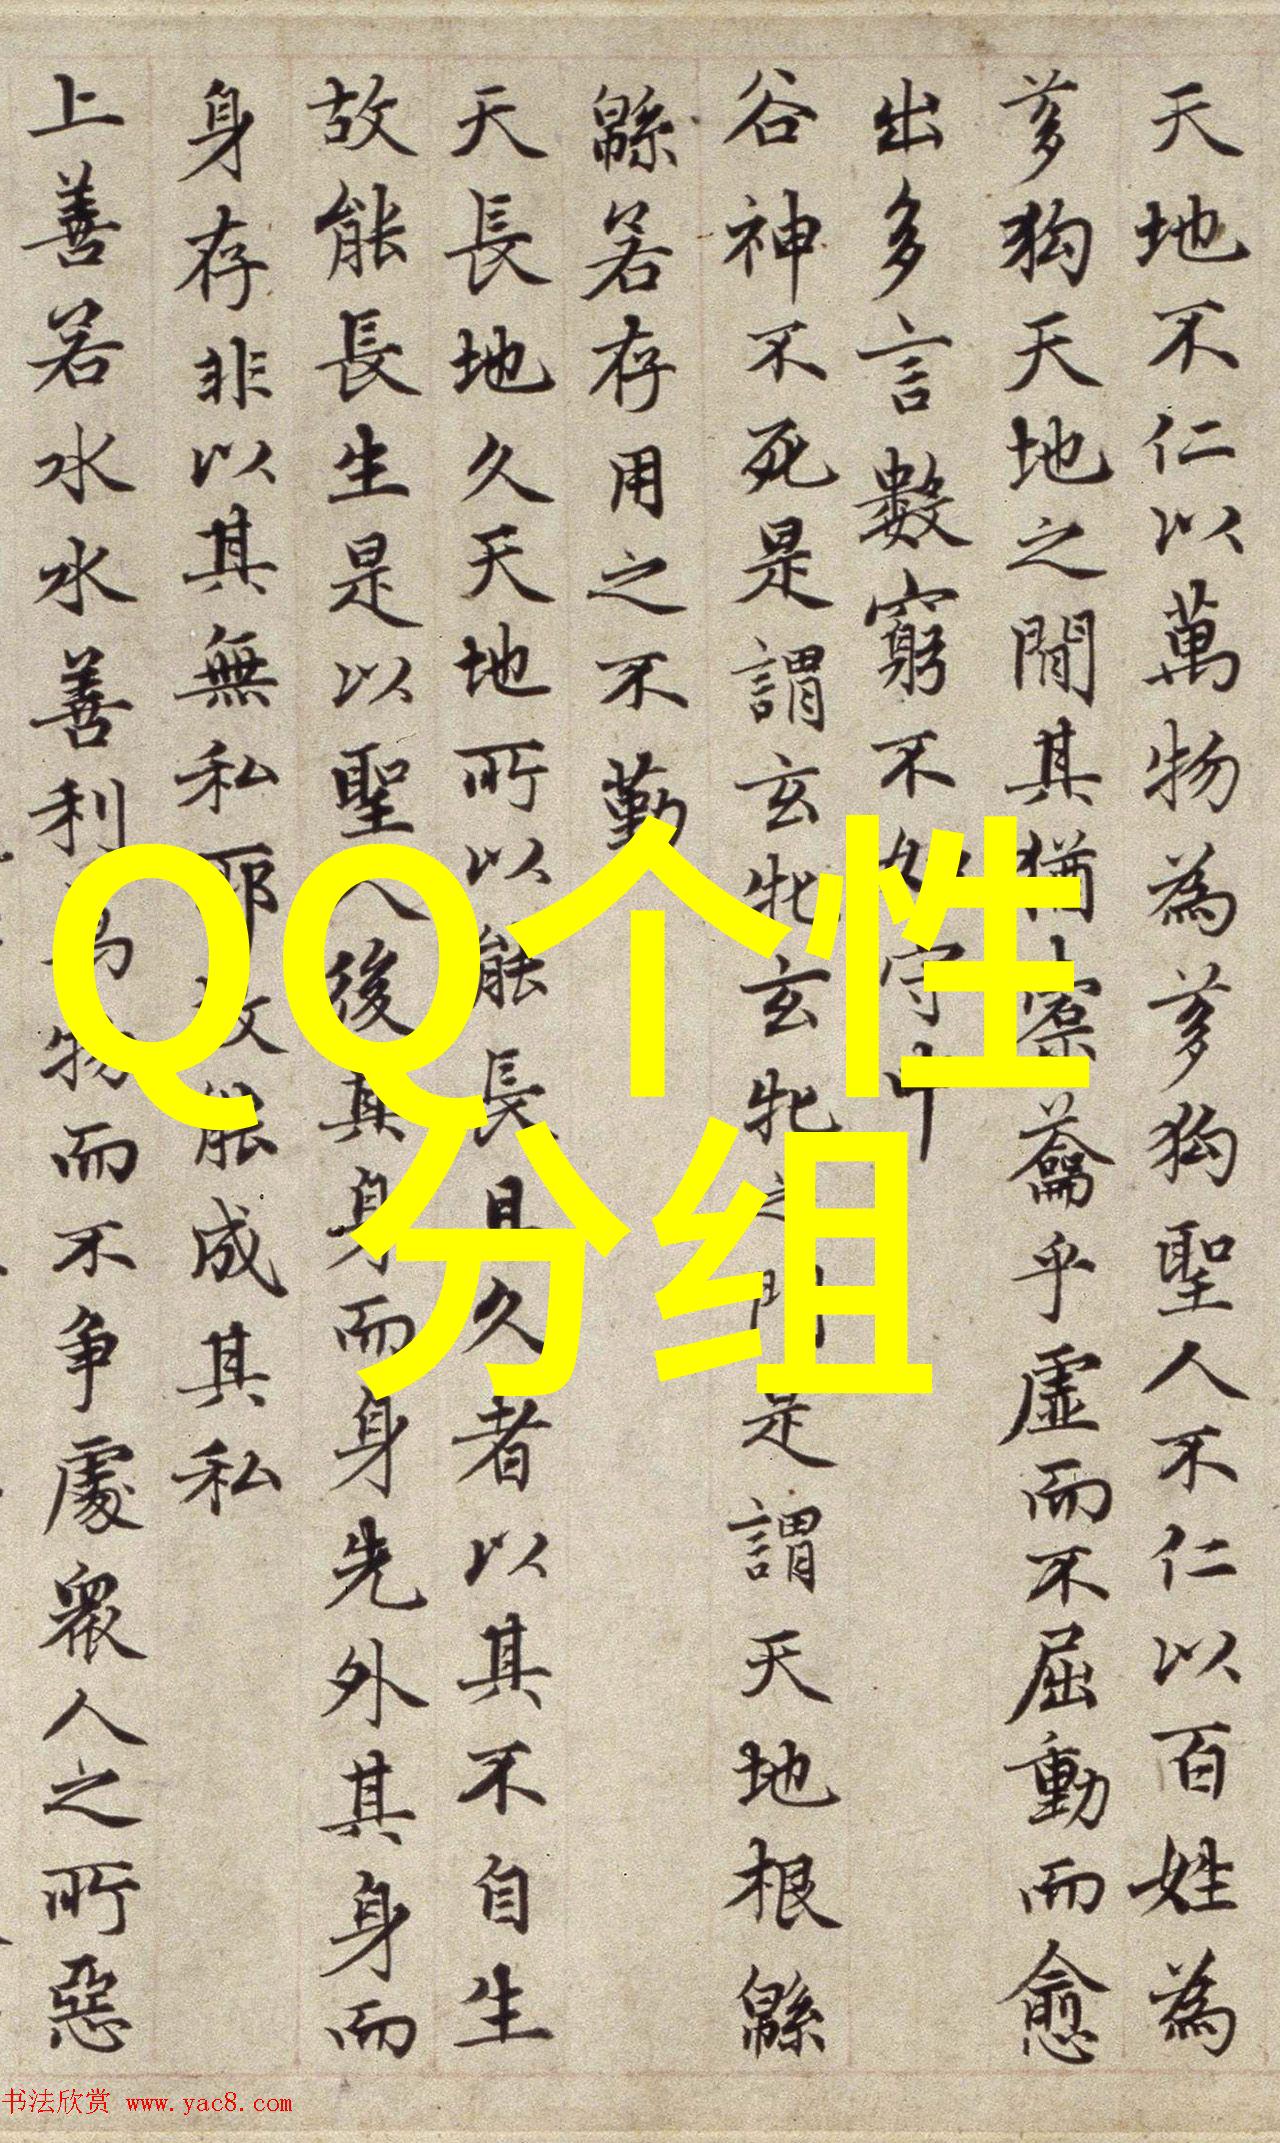 天地不仁以萬物為芻狗聖人不仁以百姓為
芻狗天地之間其猶橐籥乎虛而不屈動而愈
出多言數窮不如守中
谷神不死是謂玄牝玄牝之門是謂天地根緜
緜若存用之不勤
天長地久天地所以能長且久者以其不自生
故能長生是以聖人後其身而身先外其身而
身存非以其無私耶故能成其私
上善若水水善利萬物而不争處衆人之所惡
QQ个性
分组
书法欣赏 www.yac8.com